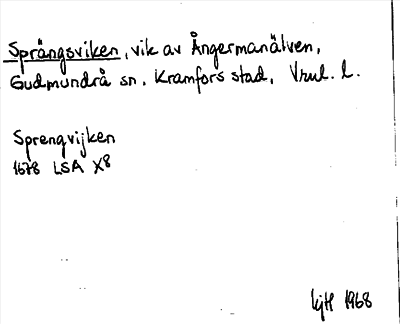 Sprängsviken, vik av Ångermanälven,
Gudmundrå sn. Kramfors stad,
Sprengvijken
1678 LSA X8
1968